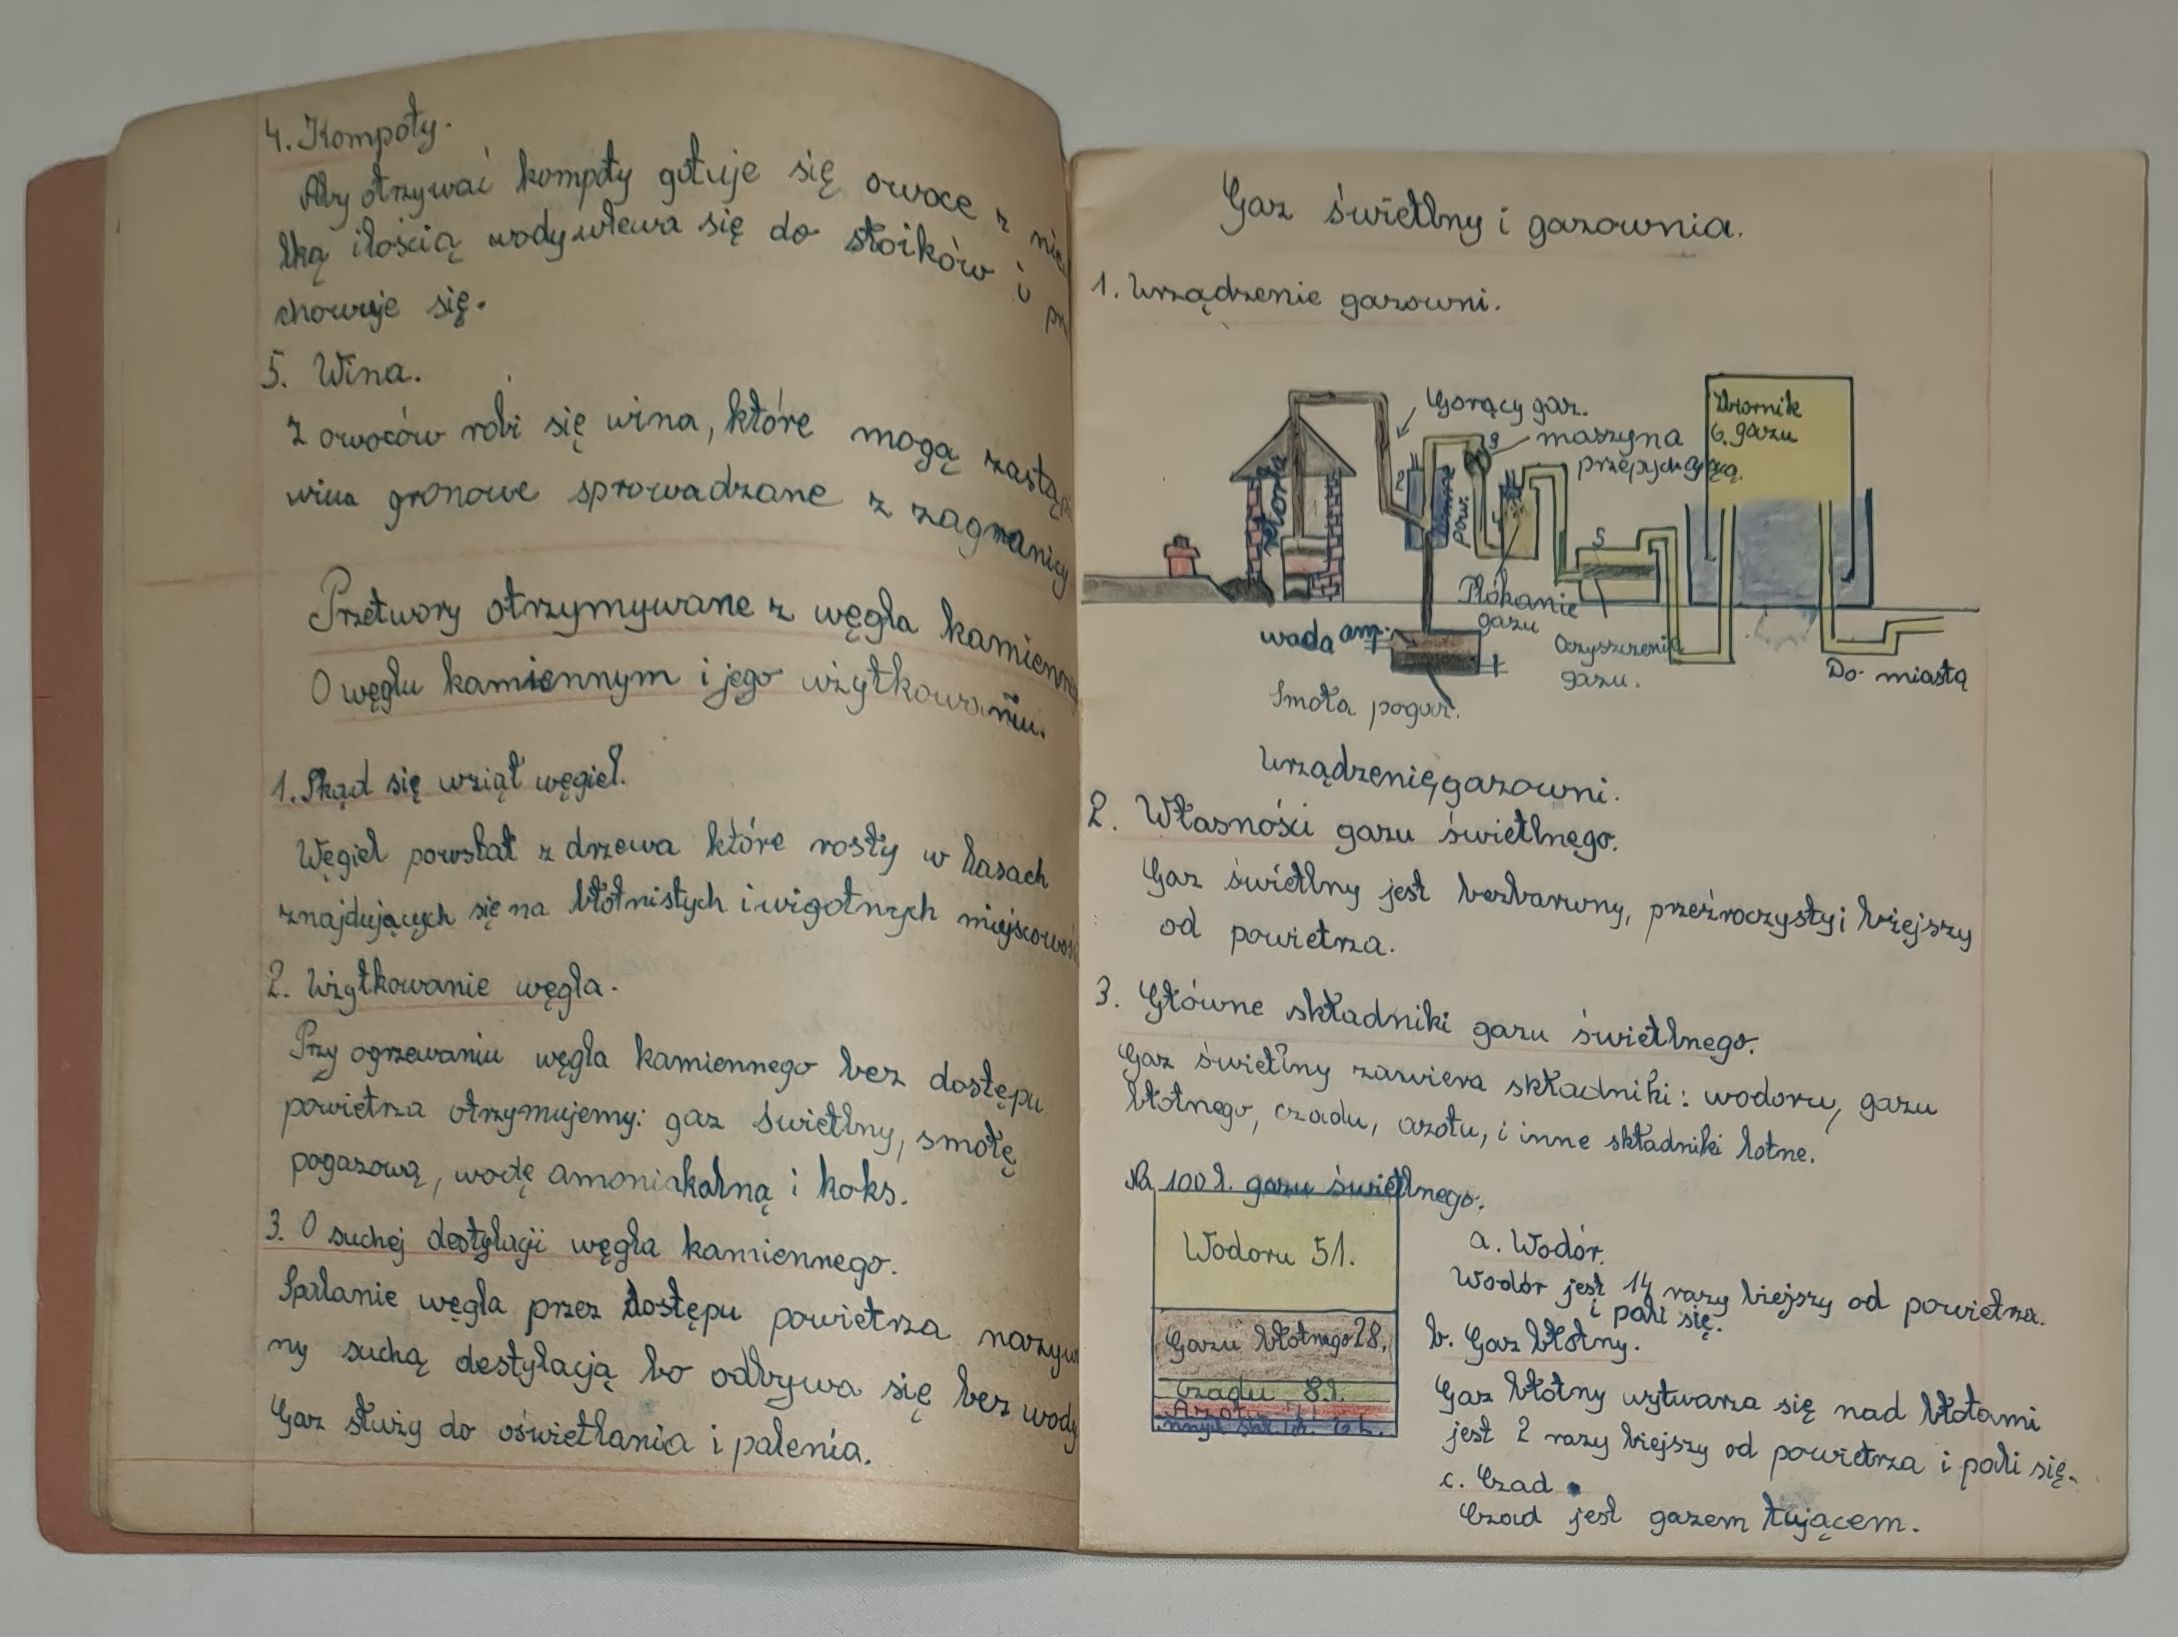 4. Kompoty.
Aby otrzywać kompoty gotuje się owoce z nie
lką ilością wody wlewa się do słoików i
chowuje się.
5. Wina.
Z owoców robi się wina, które mogą zastąp
wina gronowe sprowadzane z zagranicy
Przetwory otrzymywane z węgla kamienn
O węglu kamiennym i jego użytkowaniu.
1. Skąd się wziął węgiel.
Węgiel powstał z drzewa które rosły w lasach
znajdujących się na błotnistych i wigotnych miejscowoś
2. Użytkowanie węgla.
Przy ogrzewaniu węgla kamiennego bez dostępu
powietrza otrzymujemy: gaz świetlny, smołę
pogazową, wodę amoniakalną i koks.
3. O suchej destylacji węgla kamiennego.
Spalanie węgla przez dostępu powietrza nazyw
my suchą destylacją bo odbywa się bez wody
Gaz służy do oświetlania i palenia.
Gaz świetlny i gazownia.
1. Urządzenie gazowni.
Gorący gaz.
maszyna
przepychającą.
Zbiornik
6. gazu
retorta
2
3
pow.
4
5
Płókanie
gazu
Oczyszczenie
gazu.
woda am.
Smoła pogaz.
Do miasta
Urządzenie gazowni.
2. Własności gazu świetlnego.
Gaz świetlny jest bezbarwny, przeźroczysty i lżejszy
od powietrza.
3. Główne składniki gazu świetlnego.
Gaz świetlny zawiera składniki: wodoru, gazu
błotnego, czadu, azotu, i inne składniki lotne.
Na 100 l. gazu świetlnego.
Wodoru 51.
Gazu błotnego 28.
Czadu 8 l.
Azotu
a. Wodór.
Wodór jest 14 razy lżejszy od powietrza.
i pali się.
b. Gaz błotny.
Gaz błotny wytwarza się nad błotami
jest 2 razy lżejszy od powietrza i pali się.
c. Czad.
Czad jest gazem trującem.